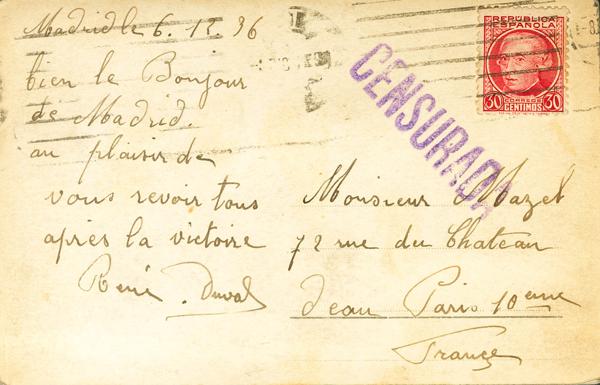 Madrid le 6. 12. 36
bien le Bonjour
de Madrid.
au plaisir de
vous revoir tous
après la victoire
René. Duval
CENSURADA
REPUBLICA
ESPAÑOLA
30
CORREOS
CENTIMOS
30
Monsieur Mazel
72 rue du Chateau
deau Paris 10eme
France